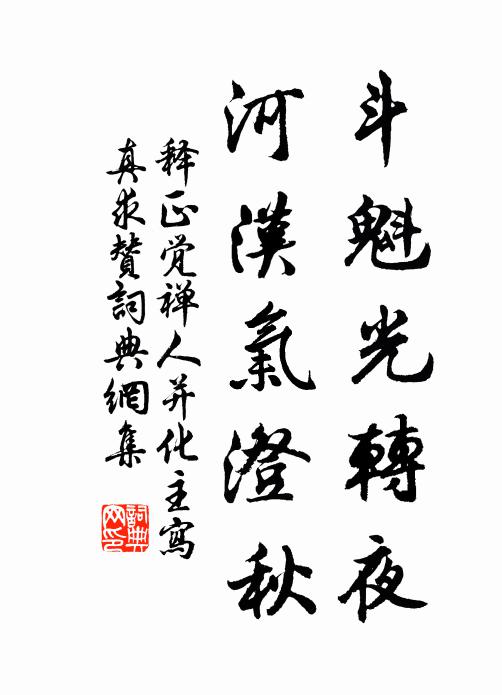 斗魁光轉夜
河漢氣澄秋
释正觉禅人并化主寫
真求贊詞典網集
詞典网印